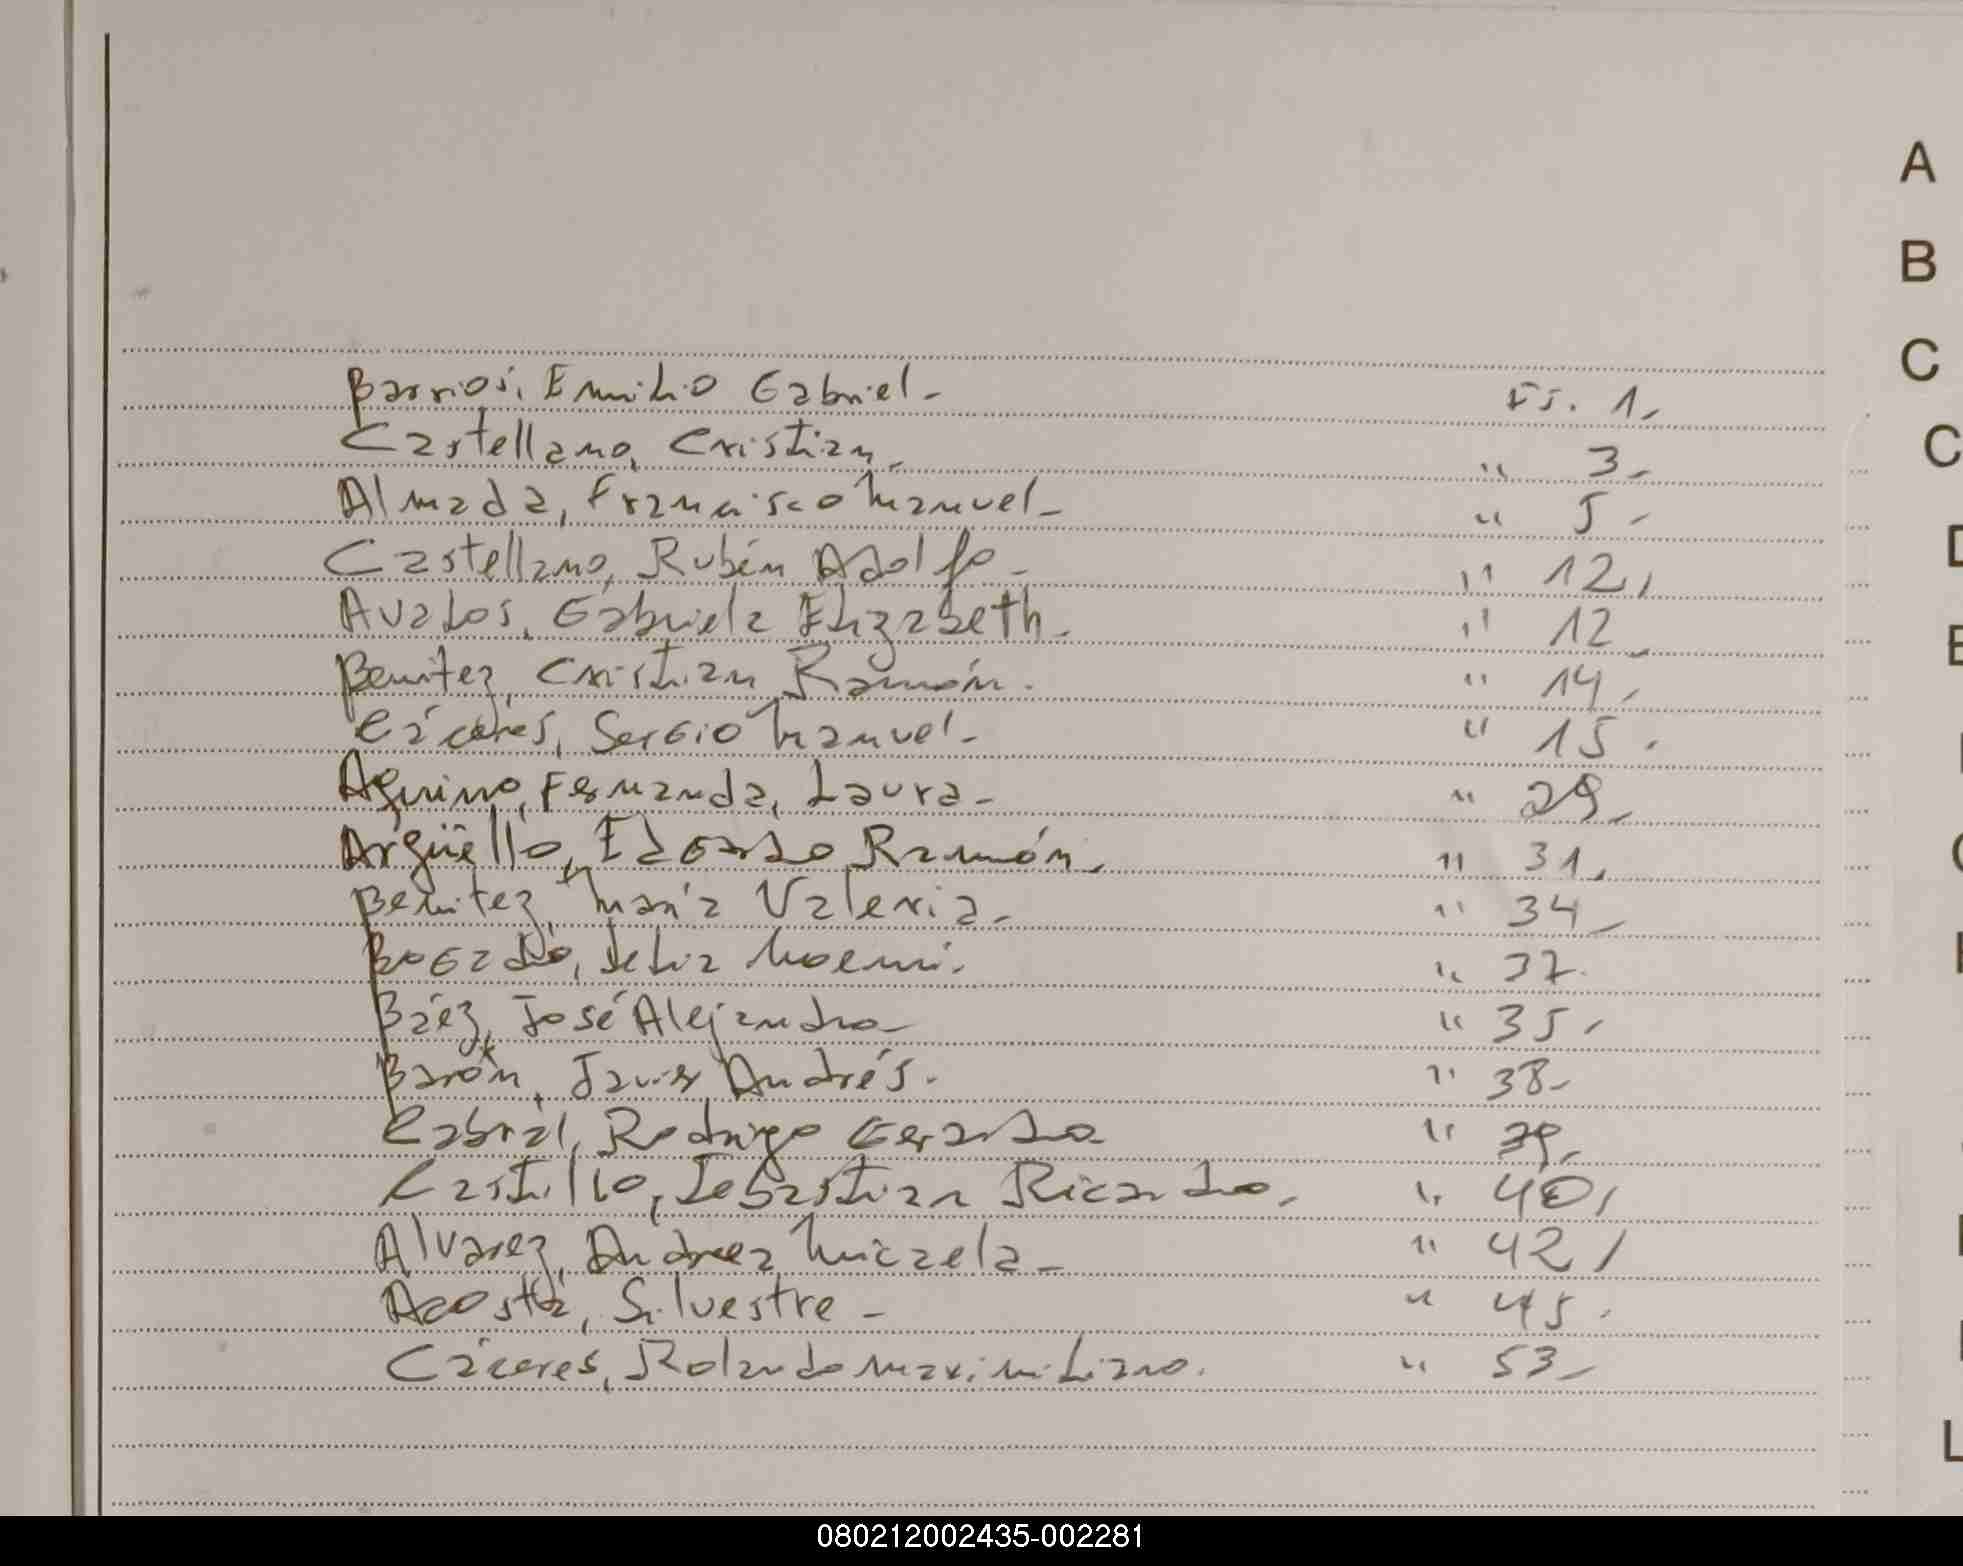 Barrios, Emilio Gabriel - Fs. 1,
Castellano, Cristian - " 3 -
Almada, Francisco Manuel - " 5 -
Castellano, Rubén Adolfo - " 12,
Avalos, Gabriela Elizabeth - " 12 -
Benitez, Cristian Ramón. " 14 -
Cáceres, Sergio Manuel - " 15 -
Aquino, Fernanda, Laura - " 29 -
Argüello, Edgardo Ramón. " 31,
Benitez, María Valeria - " 34 -
Bogado, Delia Noemi. " 37.
Báez, José Alejandro - " 35 -
Barón, Javier Andrés. " 38 -
Cabral, Rodrigo Gerardo " 39,
Castillo, Sebastian Ricardo, " 40,
Alvarez, Andrea Micaela - " 42,
Acosta, Silvestre - " 45.
Cáceres, Rolando Maximiliano. " 53 -
A
B
C
C
L
080212002435-002281